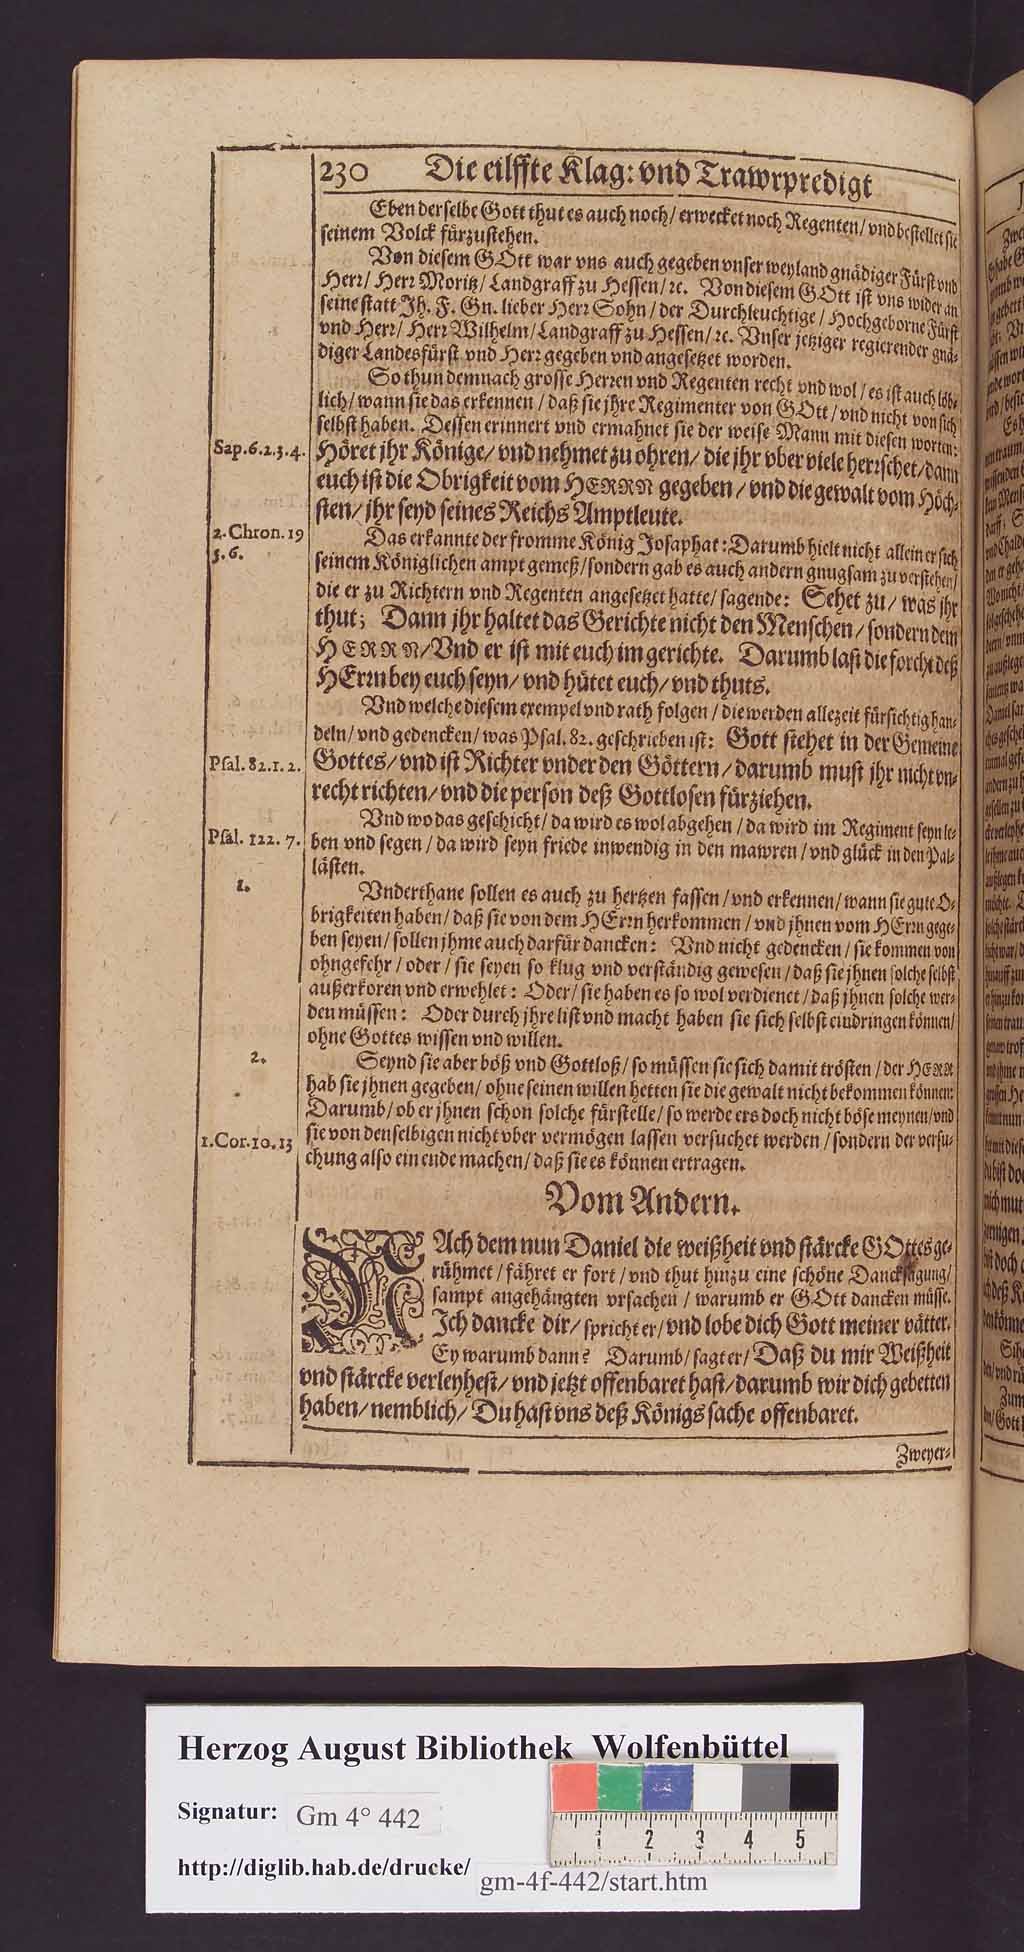 230 Die eilffte Klag: vnd Trawrpredigt
Eben derselbe Gott thut es auch noch/ erwecket noch Regenten/ vnd bestellet sie
seinem Volck fürzustehen.
Von diesem GOtt war vns auch gegeben vnser weyland gnädiger Fürst vnd
Herr/ Herr Moritz/ Landgraff zu Hessen/ ꝛc. Von diesem GOtt ist vns wider an
seine statt Jh. F. Gn. lieber Herr Sohn/ der Durchleuchtige/ Hochgeborne Fürst
vnd Herr/ Herr Wilhelm/ Landgraff zu Hessen/ ꝛc. Vnser jetziger regierender gnä-
diger Landesfürst vnd Herr gegeben vnd angesetzet worden.
So thun demnach grosse Herren vnd Regenten recht vnd wol/ es ist auch löb-
lich/ wann sie das erkennen/ daß sie jhre Regimenter von GOtt/ vnd nicht von sich
selbst haben. Dessen erinnert vnd ermahnet sie der weise Mann mit diesen worten:
Sap. 6. 2. 3. 4. Höret jhr Könige/ vnd nehmet zu ohren/ die jhr vber viele herrschet/ dann
euch ist die Obrigkeit vom HERRN gegeben/ vnd die gewalt vom Höch-
sten/ jhr seyd seines Reichs Amptleute.
2. Chron. 19 Das erkannte der fromme König Josaphat: Darumb hielt nicht allein er sich
3. 6. seinem Königlichen ampt gemeß/ sondern gab es auch andern gnugsam zu verstehen/
die er zu Richtern vnd Regenten angesetzet hatte/ sagende: Sehet zu/ was jhr
thut; Dann jhr haltet das Gerichte nicht den Menschen/ sondern dem
HERRN/ Vnd er ist mit euch im gerichte. Darumb last die forcht deß
HErrn bey euch seyn/ vnd hütet euch/ vnd thuts.
Vnd welche diesem exempel vnd rath folgen/ die werden allezeit fürsichtig han-
deln/ vnd gedencken/ was Psal. 82. geschrieben ist: Gott stehet in der Gemeine
Psal. 82. 1. 2. Gottes/ vnd ist Richter vnder den Göttern/ darumb must jhr nicht vn-
recht richten/ vnd die person deß Gottlosen fürziehen.
Vnd wo das geschicht/ da wird es wol abgehen/ da wird im Regiment seyn le-
Psal. 122. 7. ben vnd segen/ da wird seyn friede inwendig in den mawren/ vnd glück in den Pal-
lästen.
1. Vnderthane sollen es auch zu hertzen fassen/ vnd erkennen/ wann sie gute O-
brigkeiten haben/ daß sie von dem HErrn herkommen/ vnd jhnen vom HErrn gege-
ben seyen/ sollen jhme auch darfür dancken: Vnd nicht gedencken/ sie kommen von
ohngefehr/ oder/ sie seyen so klug vnd verständig gewesen/ daß sie jhnen solche selbst
außerkoren vnd erwehlet: Oder/ sie haben es so wol verdienet/ daß jhnen solche wer-
den müssen: Oder durch jhre list vnd macht haben sie sich selbst eindringen können/
ohne Gottes wissen vnd willen.
2. Seynd sie aber böß vnd Gottloß/ so müssen sie sich damit trösten/ der HERR
hab sie jhnen gegeben/ ohne seinen willen hetten sie die gewalt nicht bekommen können:
Darumb/ ob er jhnen schon solche fürstelle/ so werde ers doch nicht böse meynen/ vnd
1. Cor. 10. 13 sie von denselbigen nicht vber vermögen lassen versuchet werden/ sondern der versu-
chung also ein ende machen/ daß sie es können ertragen.
Vom Andern.
NAch dem nun Daniel die weißheit vnd stärcke GOttes ge-
rühmet/ fähret er fort/ vnd thut hinzu eine schöne Dancksagung/
sampt angehängten vrsachen/ warumb er GOtt dancken müsse.
Ich dancke dir/ spricht er/ vnd lobe dich Gott meiner vätter.
Ey warumb dann? Darumb/ sagt er/ Daß du mir Weißheit
vnd stärcke verleyhest/ vnd jetzt offenbaret hast/ darumb wir dich gebetten
haben/ nemblich/ Du hast vns deß Königs sache offenbaret.
Zweyer-
Herzog August Bibliothek Wolfenbüttel
Signatur: Gm 4° 442
http://diglib.hab.de/drucke/ gm-4f-442/start.htm
1 2 3 4 5